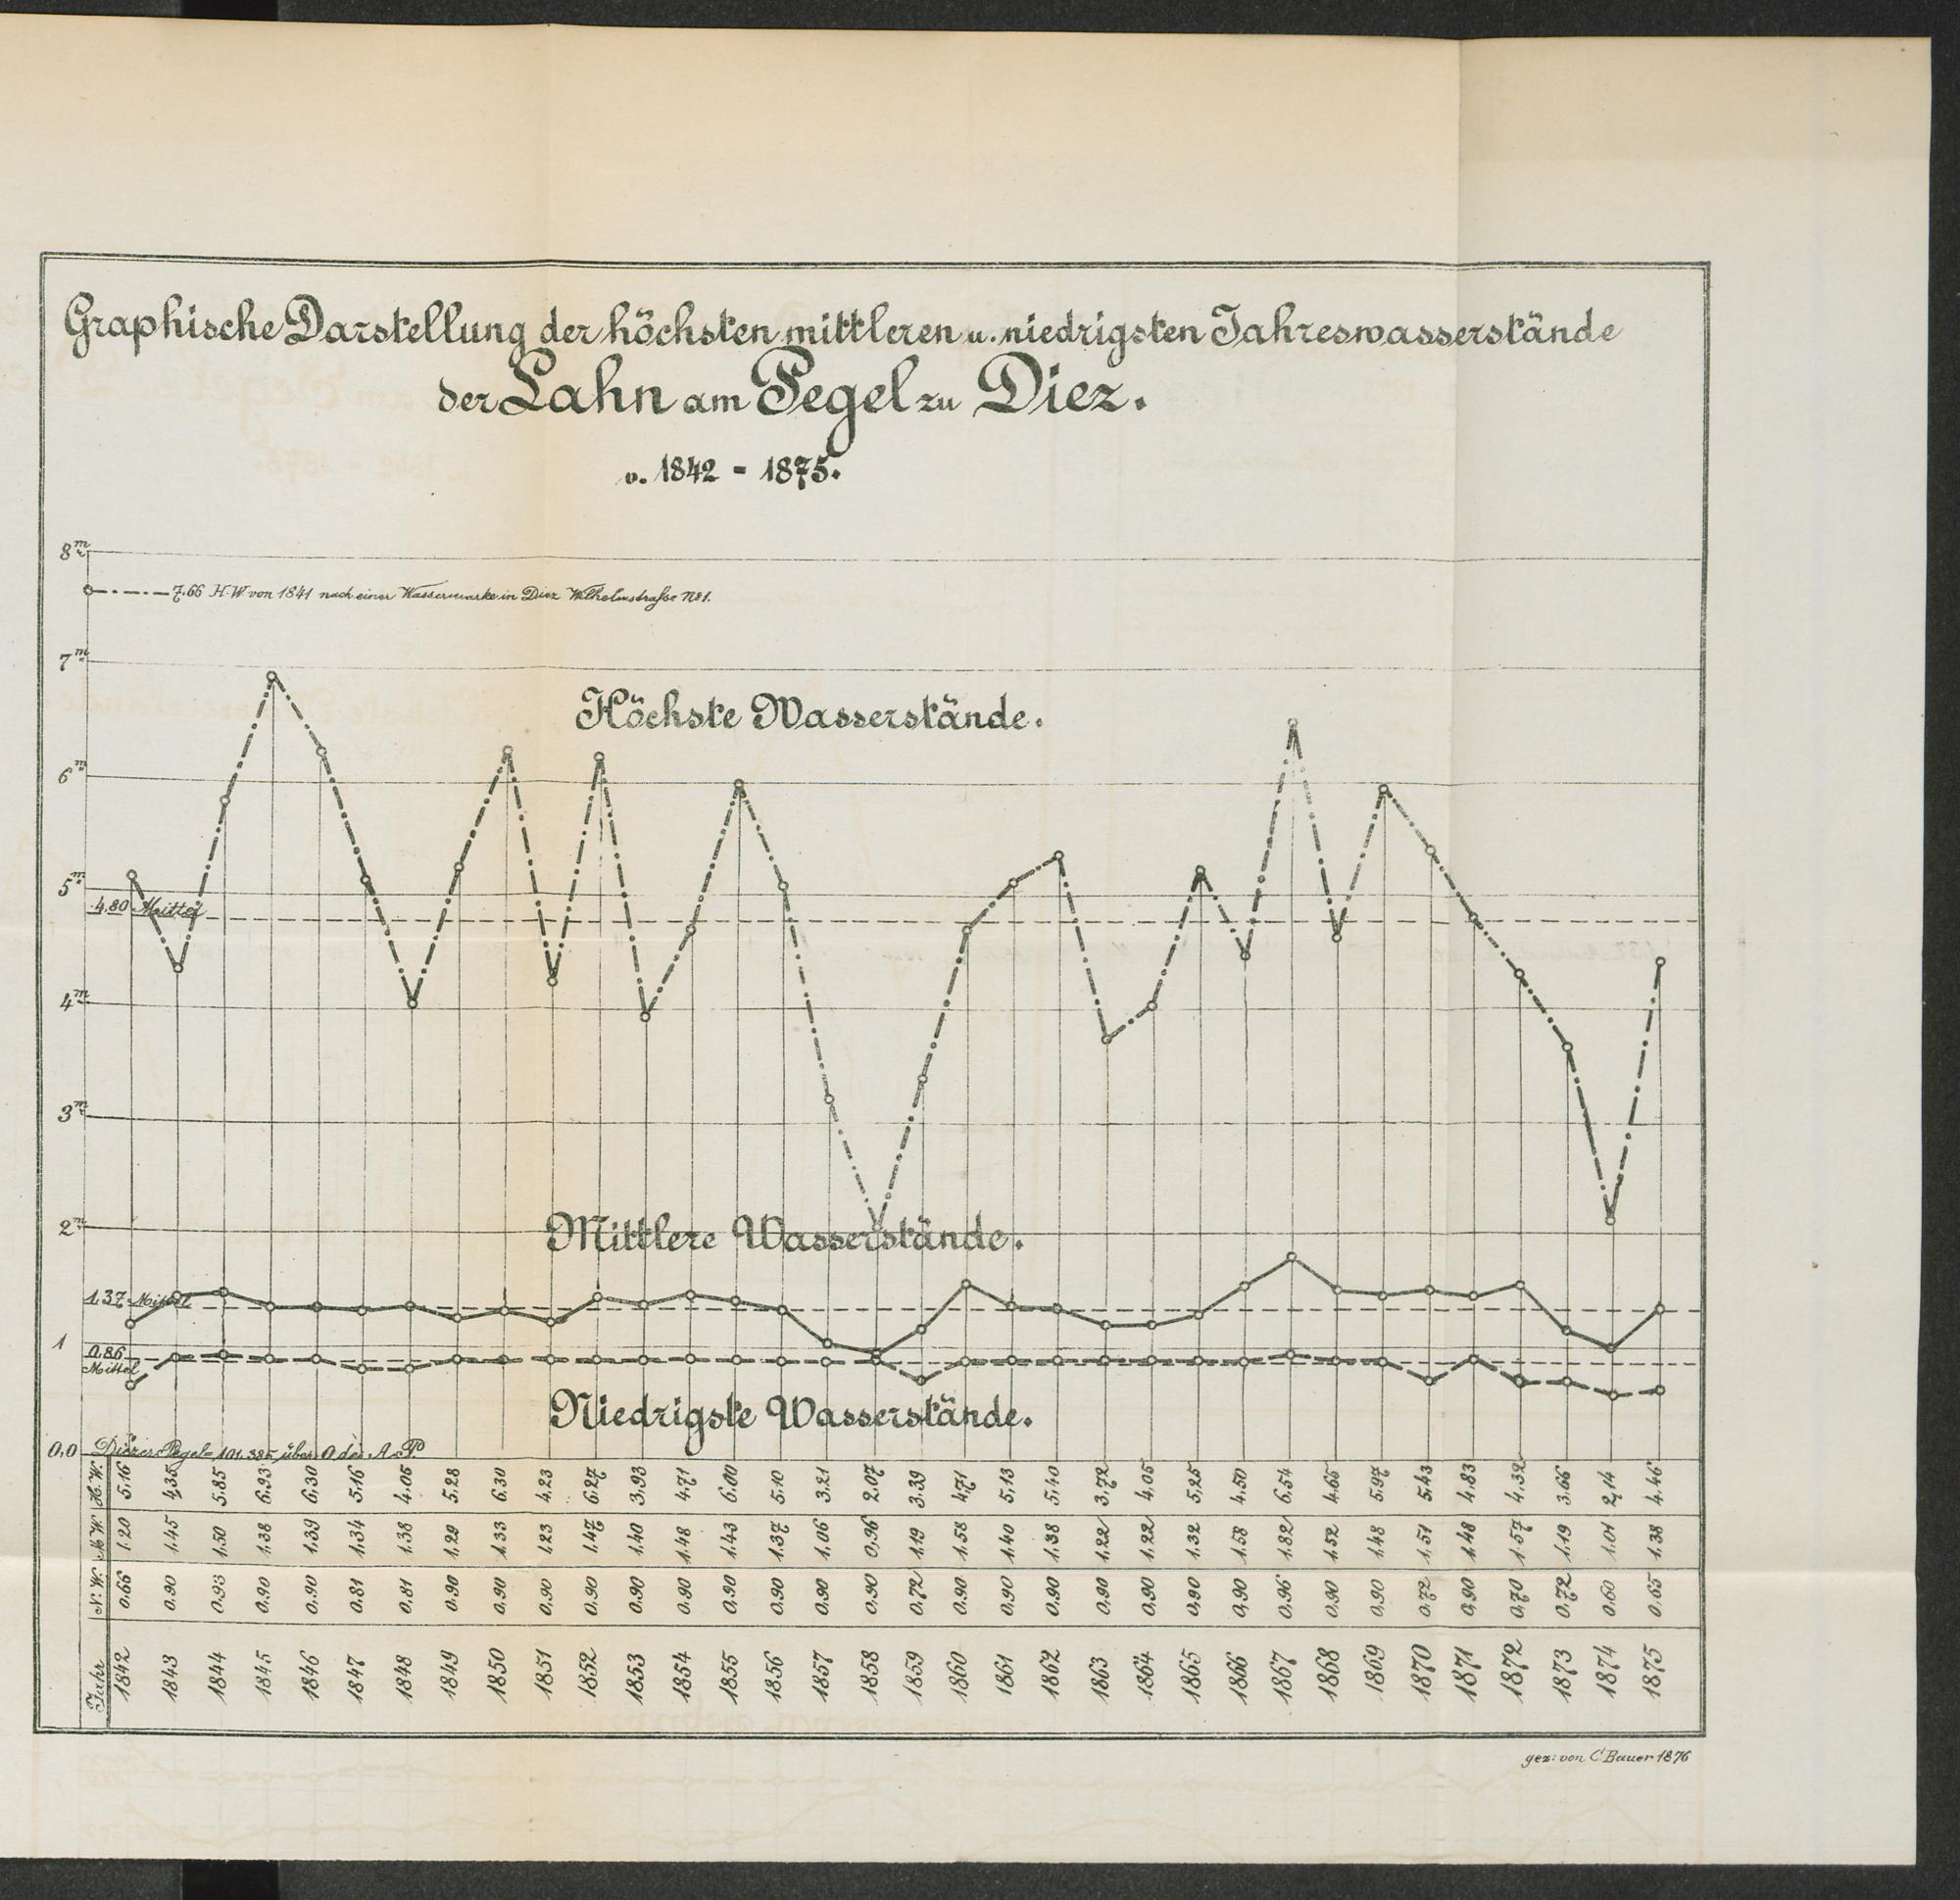 Graphische Darstellung der höchsten mittleren u. niedrigsten Jahreswasserstände
der Lahn am Pegel zu Diez.
v. 1842 - 1875.
8m
7,66 H.W von 1841 nach einer Wassermarke in Diez Wilhelmstraße No 1.
7m
Höchste Wasserstände.
6m
5m
4,80 Mittel
4m
3m
2m
Mittlere Wasserstände.
1,37 Mittel
1
0,86
Mittel
Niedrigste Wasserstände.
0,0 Diezer Pegel = 101,385 über 0 des A.P.
H.W. 5,16 4,35 5,85 6,93 6,30 5,16 4,05 5,28 6,30 4,23 6,27 3,93 4,71 6,00 5,10 3,21 2,07 3,39 4,71 5,13 5,40 3,72 4,05 5,25 4,50 6,54 4,65 5,97 5,43 4,83 4,32 3,66 2,14 4,46
M.W. 1,20 1,45 1,50 1,38 1,39 1,34 1,38 1,29 1,33 1,23 1,47 1,40 1,48 1,43 1,37 1,06 0,96 1,19 1,58 1,40 1,38 1,22 1,22 1,32 1,58 1,82 1,52 1,48 1,51 1,48 1,57 1,19 1,01 1,38
N.W. 0,66 0,90 0,93 0,90 0,90 0,81 0,81 0,90 0,90 0,90 0,90 0,90 0,90 0,90 0,90 0,90 0,90 0,72 0,90 0,90 0,90 0,90 0,90 0,90 0,90 0,96 0,90 0,90 0,72 0,90 0,70 0,72 0,60 0,65
Jahr 1842 1843 1844 1845 1846 1847 1848 1849 1850 1851 1852 1853 1854 1855 1856 1857 1858 1859 1860 1861 1862 1863 1864 1865 1866 1867 1868 1869 1870 1871 1872 1873 1874 1875
gez: von C. Bauer 1876